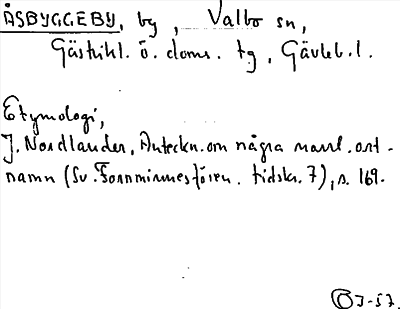 ÅSBYGGEBY, by, Valbo sn,
Gästrikl. ö. doms. tg, Gävleb. l.
Etymologi,
J. Nordlander, Anteckn. om några norrl. ort-
namn (Sv. Fornminnesfören. tidskr. 7), s. 169.
J-57.